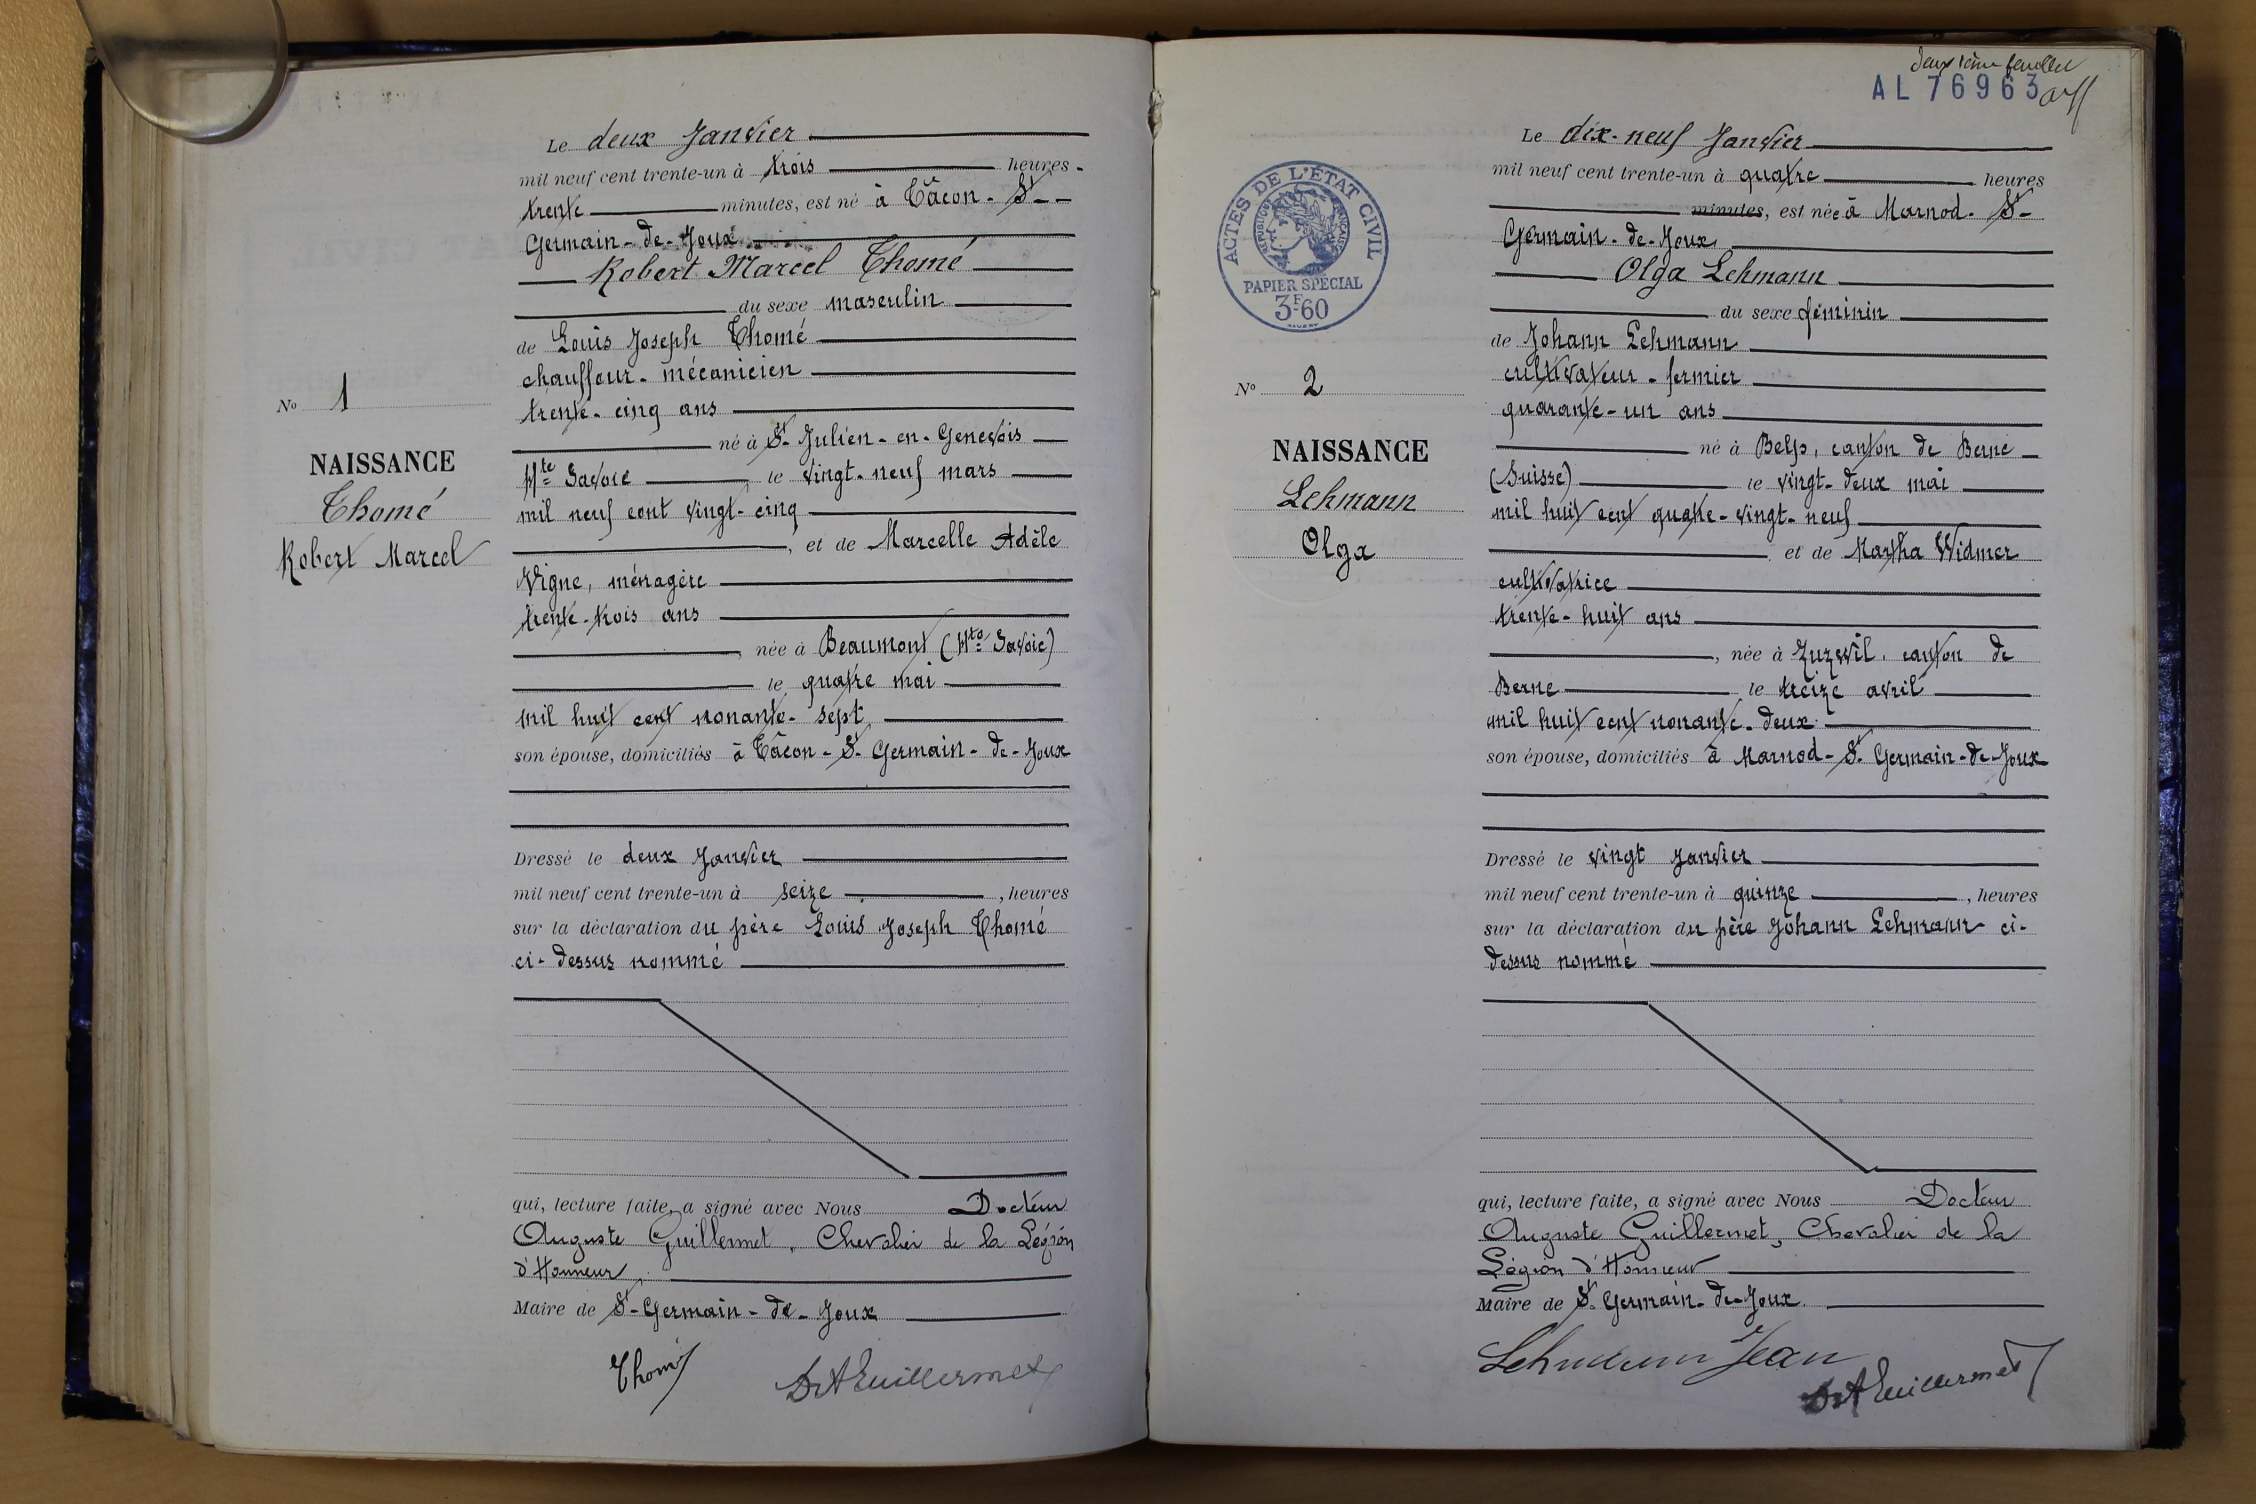 Le deux Janvier
mil neuf cent trente-un à trois heures
trente minutes, est né à Tâcon - St-
Germain-de-Joux
Robert Marcel Thomé
du sexe masculin
de Louis Joseph Thomé
chauffeur-mécanicien
trente-cinq ans
né à St-Julien-en-Genevois
Hte Savoie, le vingt-neuf mars
mil neuf cent vingt-cinq
, et de Marcelle Adèle
Vigne, ménagère
trente-trois ans
, née à Beaumont (Hte Savoie)
le quatre mai
mil huit cent nonante-sept,
son épouse, domiciliés à Tâcon-St-Germain-de-Joux
Dressé le deux Janvier
mil neuf cent trente-un à seize, heures
sur la déclaration du père Louis Joseph Thomé
ci-dessus nommé
qui, lecture faite, a signé avec Nous Docteur
Auguste Guillermet, Chevalier de la Légion
d'Honneur,
Maire de St-Germain-de-Joux
Thomé
Dr A Guillermet
No 1
NAISSANCE
Thomé
Robert Marcel
deuxième feuillet
AL 76963
Le dix-neuf Janvier
mil neuf cent trente-un à quatre heures
minutes, est née à Marnod-St-
Germain-de-Joux
Olga Lehmann
du sexe féminin
de Johann Lehmann
cultivateur-fermier
quarante-un ans
né à Belp, canton de Berne
(Suisse) le vingt-deux mai
mil huit cent quatre-vingt-neuf
et de Martha Widmer
cultivatrice
trente-huit ans
, née à Zuzwil, canton de
Berne le treize avril
mil huit cent nonante-deux
son épouse, domiciliés à Marnod-St-Germain-de-Joux
Dressé le vingt Janvier
mil neuf cent trente-un à quinze, heures
sur la déclaration du père Johann Lehmann ci-
dessus nommé
qui, lecture faite, a signé avec Nous Docteur
Auguste Guillermet, Chevalier de la
Légion d'Honneur
Maire de St-Germain-de-Joux
Lehmann Jean
Dr A Guillermet
ACTES DE L'ÉTAT CIVIL
RÉPUBLIQUE FRANÇAISE
PAPIER SPÉCIAL
3F60
No 2
NAISSANCE
Lehmann
Olga